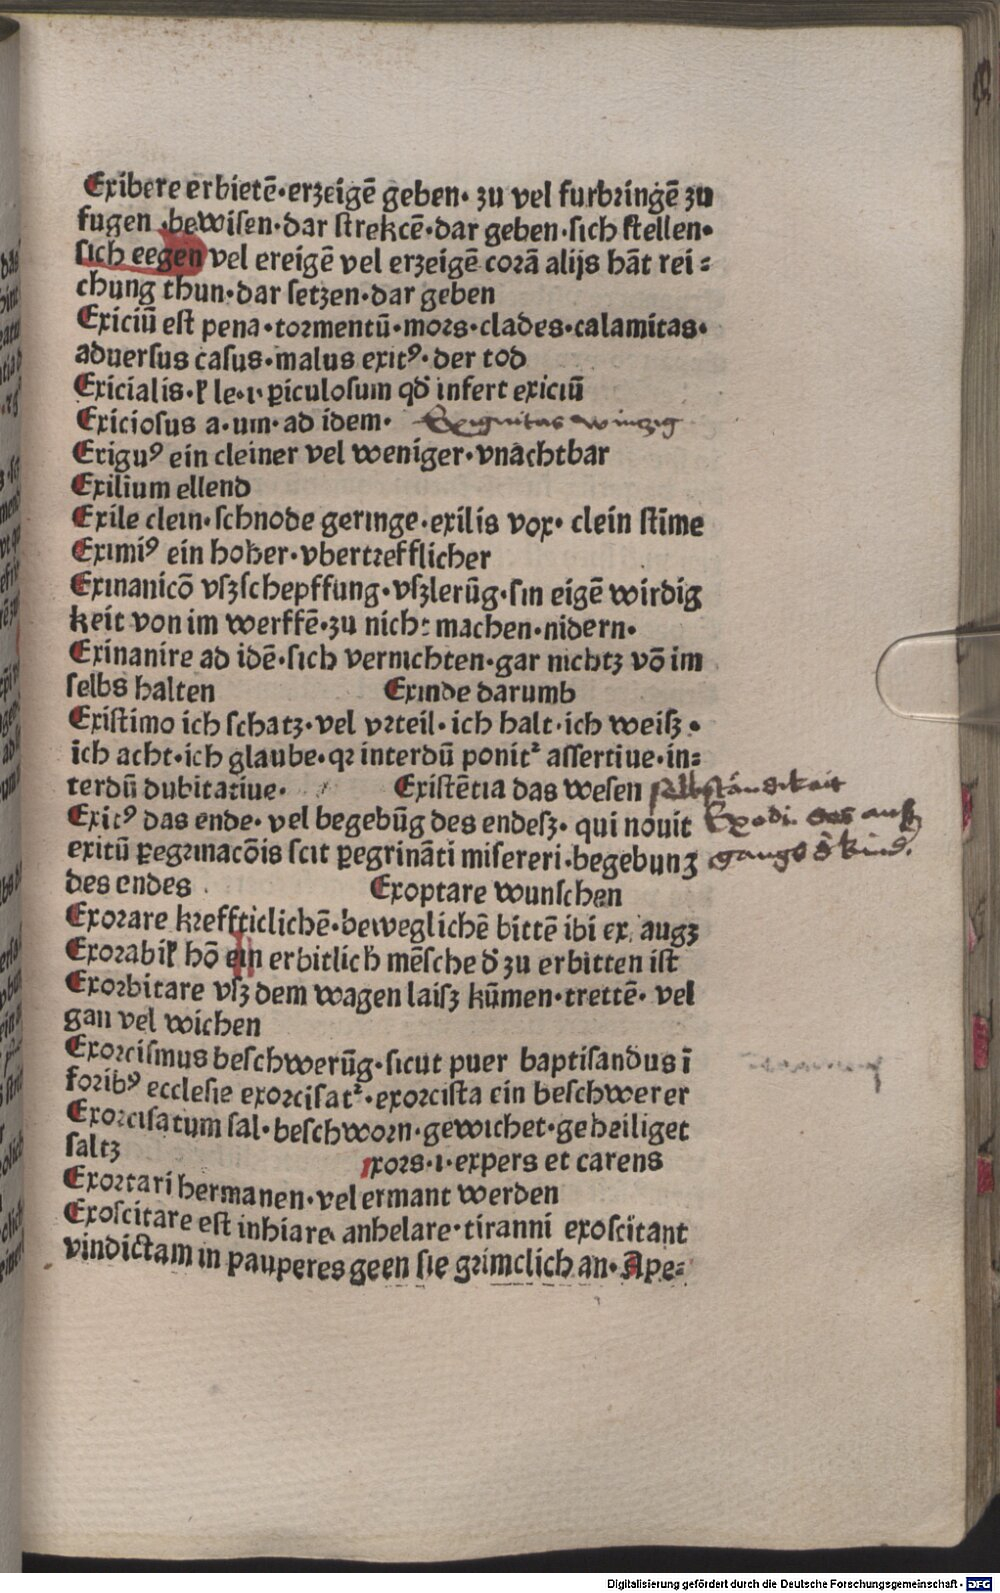 Exibere erbietē·erzeigē geben· zu vel furbringē zu
fugen ·bewisen·dar strekcē·dar geben·sich stellen·
sich eegen vel ereigē vel erzeigē corā alijs hāt rei⸗
chung thun·dar setzen·dar geben
Exiciū est pena·tormentū·mors·clades·calamitas·
aduersus casus·malus exitꝰ·der tod
Exicialis·ł le·i·ꝑiculosum qđ infert exiciū
Exiciosus a·um·ad idem· Exiguitas winzig
Eriguꝰ ein cleiner vel weniger·vnachtbar
Exilium ellend
Exile clein·schnode geringe·exilis vox·clein stīme
Eximiꝰ ein hoher·vbertrefflicher
Exinanicō vſzschepffung·vſzlerūg·sin eigē wirdig
keit von im werffē·zu nicht machen·nidern·
Exinanire ad idē·sich vernichten·gar nichtz vō im
selbs halten Exinde darumb
Existimo ich schatz·vel vrteil·ich halt·ich weiſz·
ich acht·ich glaube·qꝛ interdū ponitᷣ assertiue·in⸗
terdū dubitatiue· Existētia das wesen selbständikait
Exitꝰ das ende·vel begebūg des endeſz·qui nouit Exodi des auſz
exitū ꝑegrinacōis scit ꝑegrināti misereri·begebung gangs d̄ kind.
des endes Exoptare wunschen
Exorare kreffticlichē·beweglichē bittē ibi ex augꝫ
Exorabił hō ein erbitlich mēsche đ zu erbitten ist
Exorbitare vſz dem wagen laisz kūmen·trettē·vel
gan vel wichen
Exorcismus beschwerūg·sicut puer baptisandus ī
foribꝰ ecclesie exorcisatᷣ·exorcista ein beschwerer
Exorcisatum sal·beschworn·gewichet·geheiliget
saltz
xors·i·expers et carens
Exortari hermanen·vel ermant werden
Exoscitare est inhiare anhelare·tiranni exoscitant
vindictam in pauperes geen sie grimclich an·Ape⸗
Digitalisierung gefördert durch die Deutsche Forschungsgemeinschaft - DFG